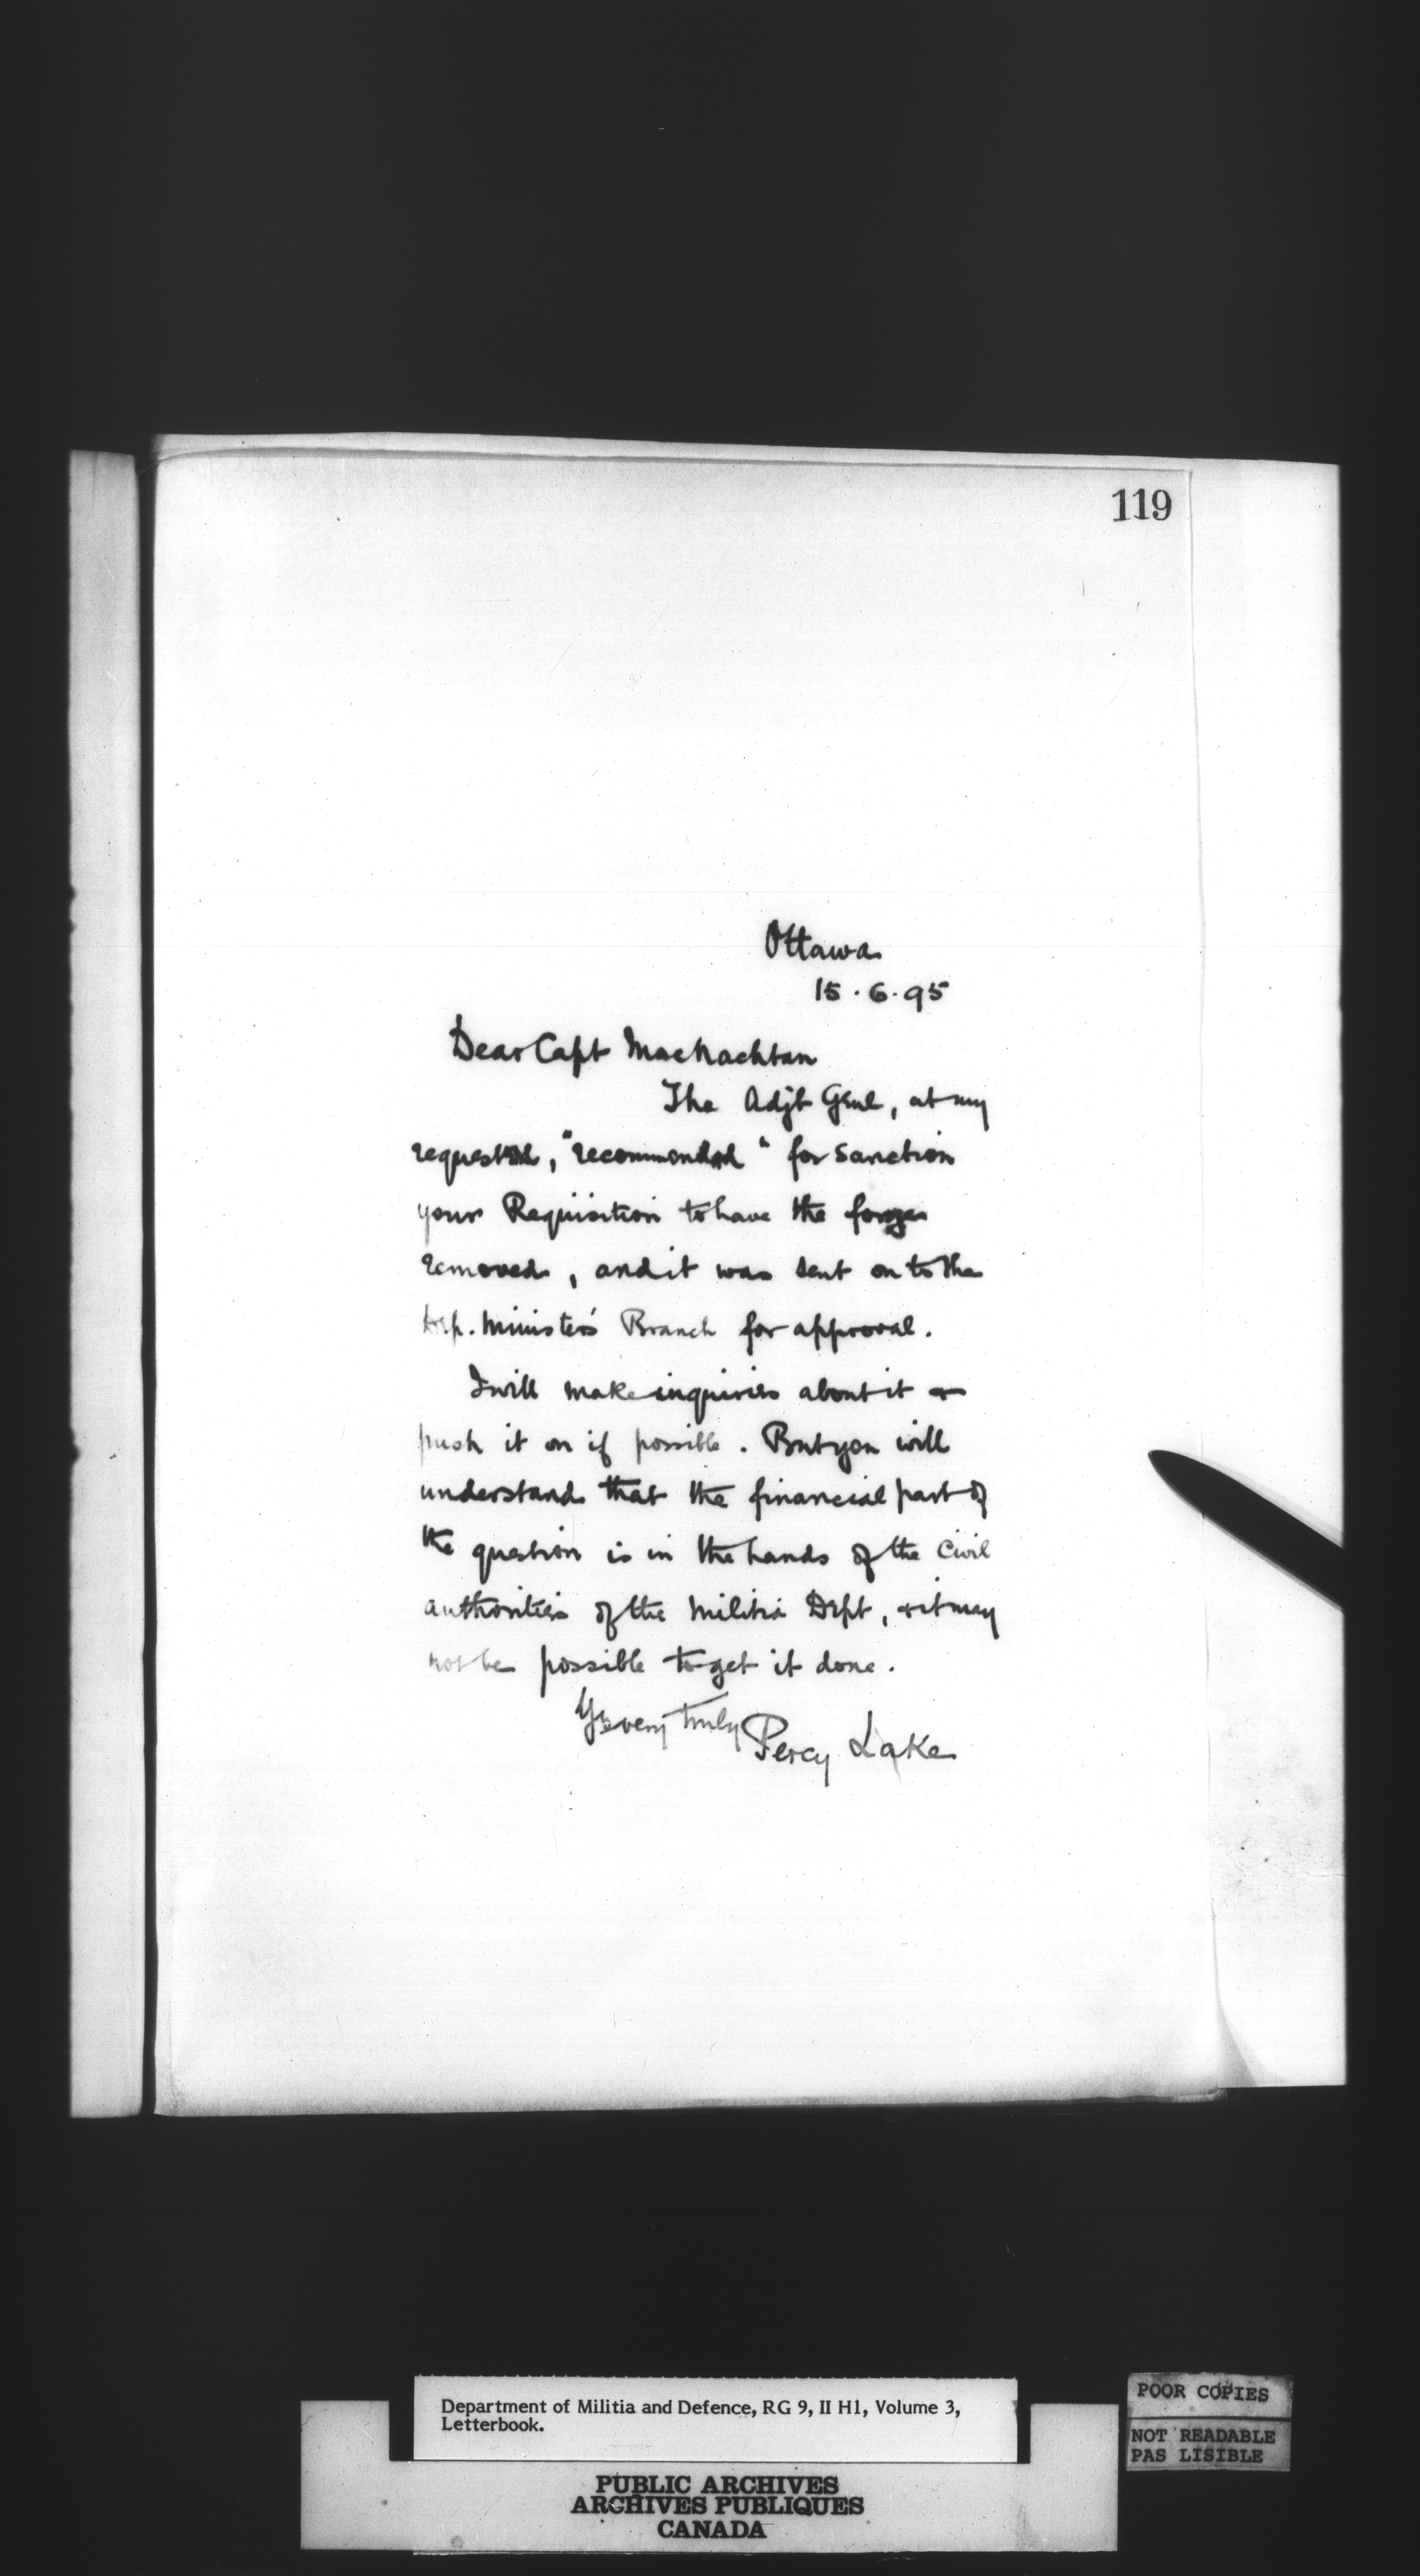 119
Ottawa
15.6.95
Dear Capt MacNachtan
The Adjt Genl, at my
request, "recommended" for sanction
your Requisition to have the forge
removed, and it was sent on to the
Dep. Minister's Branch for approval.
I will make inquiries about it &
push it on if possible. But you will
understand that the financial part of
the question is in the hands of the Civil
authorities of the Militia Dept, & it may
not be possible to get it done.
Yrs very truly
Percy Lake
Department of Militia and Defence, RG 9, II H1, Volume 3,
Letterbook.
POOR COPIES
NOT READABLE
PAS LISIBLE
PUBLIC ARCHIVES
ARCHIVES PUBLIQUES
CANADA